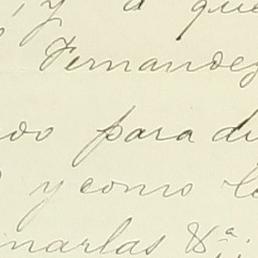 , y a que
Fernandez
do para di
y como lo
narlas &ª;